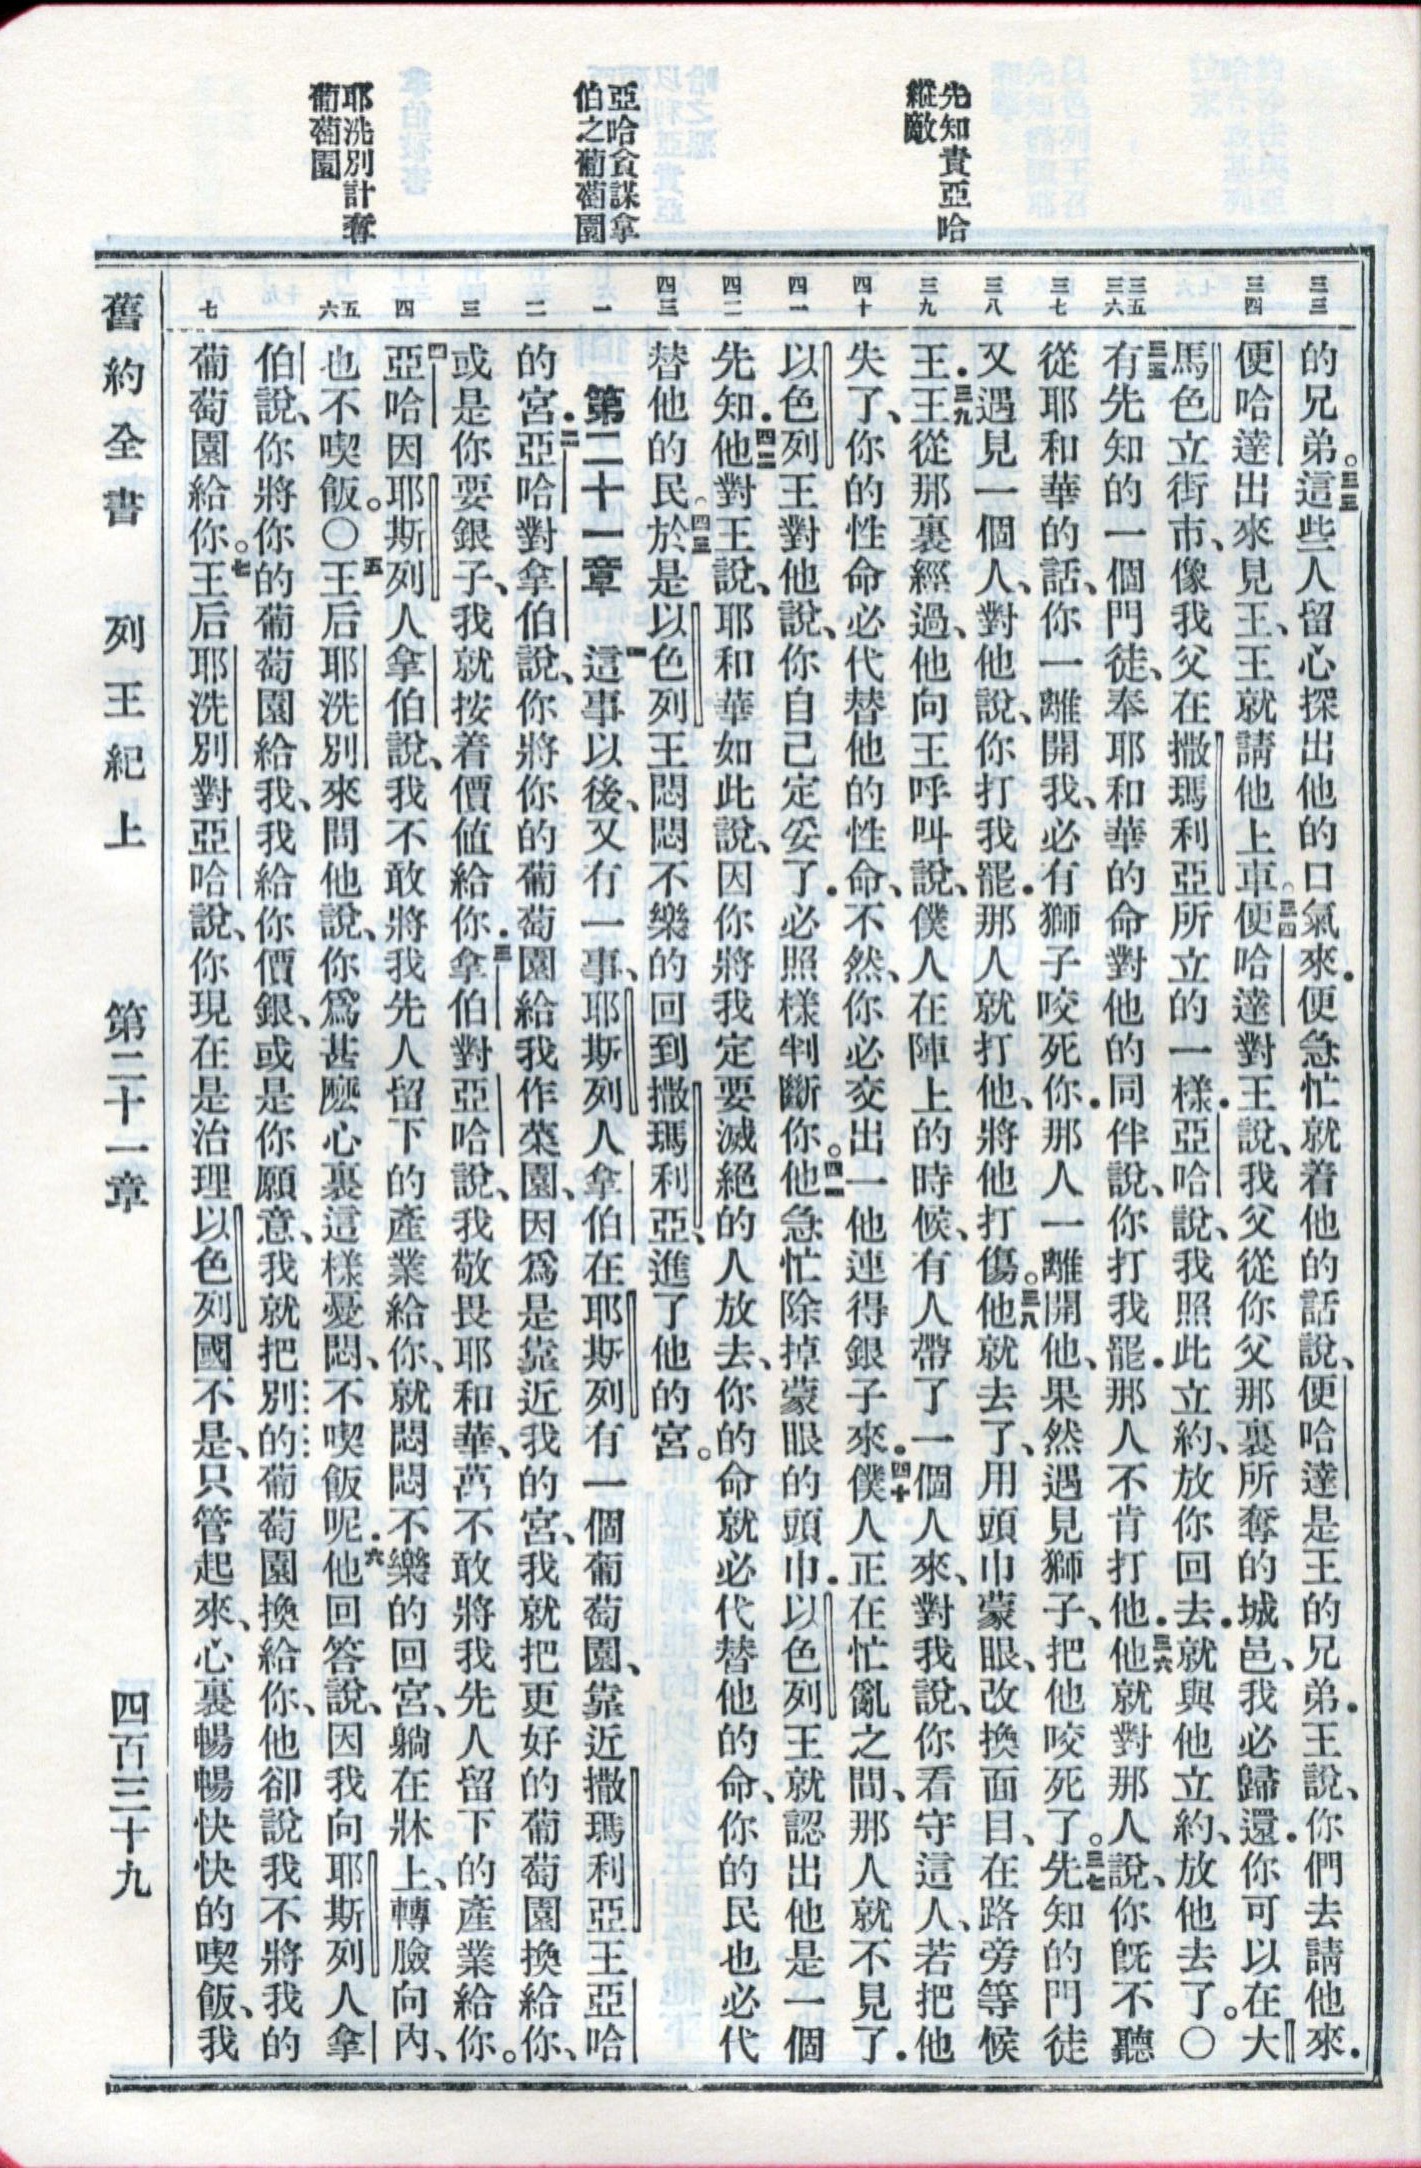 先知責亞哈
縱敵
亞哈貪謀拿
伯之葡萄園
耶洗別計奪
葡萄園
三三
三四
三五
三六
三七
三八
三九
四十
四一
四二
四三
一
二
三
四
五
六
七
的兄弟。三三這些人留心探出他的口氣來．便急忙就着他的話說、便哈達是王的兄弟．王說、你們去請他來．
便哈達出來見王、王就請他上車。三四便哈達對王說、我父從你父那裏所奪的城邑、我必歸還．你可以在大
馬色立街市、像我父在撒瑪利亞所立的一樣．亞哈說、我照此立約、放你回去．就與他立約、放他去了。〇
三五有先知的一個門徒、奉耶和華的命對他的同伴說、你打我罷．那人不肯打他．三六他就對那人說、你旣不聽
從耶和華的話、你一離開我、必有獅子咬死你．那人一離開他、果然遇見獅子、把他咬死了。三七先知的門徒
又遇見一個人、對他說、你打我罷．那人就打他、將他打傷。三八他就去了、用頭巾蒙眼、改換面目、在路旁等候
王．三九王從那裏經過、他向王呼叫說、僕人在陣上的時候、有人帶了一個人來、對我說、你看守這人、若把他
失了、你的性命必代替他的性命、不然、你必交出一他連得銀子來．四十僕人正在忙亂之間、那人就不見了．
以色列王對他說、你自己定妥了．必照樣判斷你。四一他急忙除掉蒙眼的頭巾．以色列王就認出他是一個
先知．四二他對王說、耶和華如此說、因你將我定要滅絕的人放去、你的命就必代替他的命、你的民也必代
替他的民。四三於是以色列王悶悶不樂的回到撒瑪利亞、進了他的宮。
第二十一章 一這事以後、又有一事、耶斯列人拿伯在耶斯列有一個葡萄園、靠近撒瑪利亞王亞哈
的宮．二亞哈對拿伯說、你將你的葡萄園給我作菜園、因爲是靠近我的宮、我就把更好的葡萄園換給你、
或是你要銀子、我就按着價値給你．三拿伯對亞哈說、我敬畏耶和華、萬不敢將我先人留下的產業給你。
四亞哈因耶斯列人拿伯說、我不敢將我先人留下的產業給你、就悶悶不樂的回宮、躺在牀上、轉臉向內、
也不喫飯。〇五王后耶洗別來問他說、你爲甚麼心裏這樣憂悶、不喫飯呢．六他回答說、因我向耶斯列人拿
伯說、你將你的葡萄園給我、我給你價銀、或是你願意、我就把別的葡萄園換給你、他卻說我不將我的
葡萄園給你。七王后耶洗別對亞哈說、你現在是治理以色列國不是、只管起來、心裏暢暢快快的喫飯、我
舊約全書 列王紀上 第二十一章 四百三十九